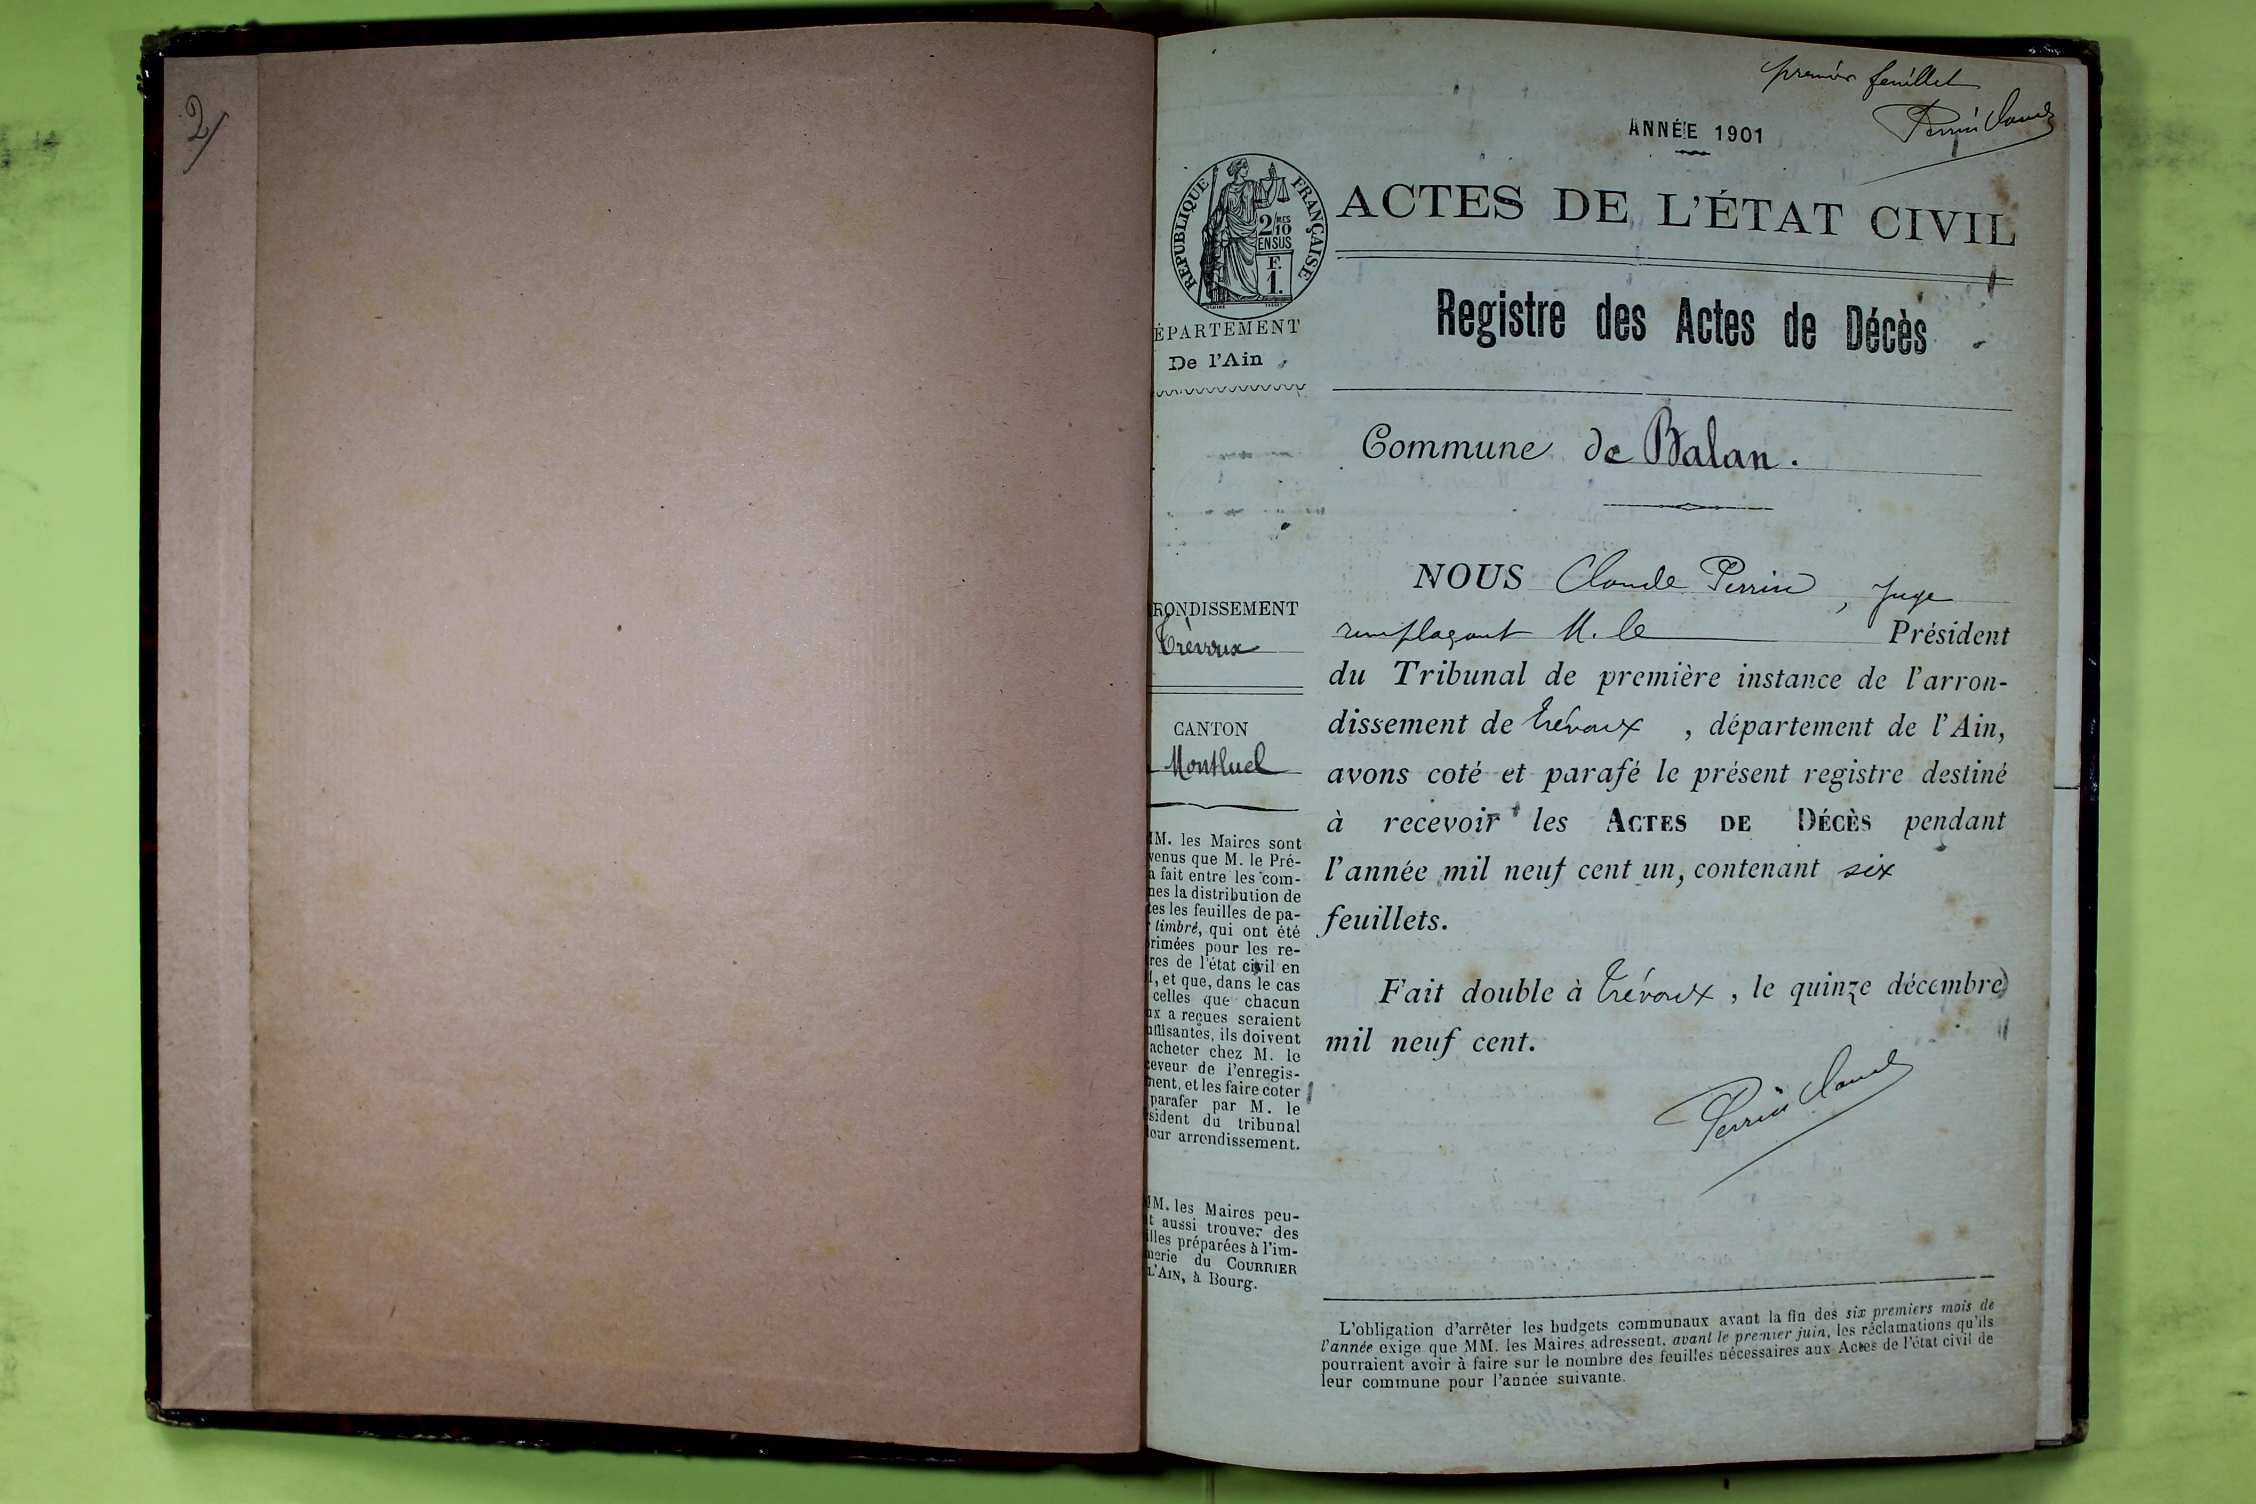 2/
premier feuillet
Perrin Claude
ANNÉE 1901
RÉPUBLIQUE FRANÇAISE
2/10 MES
EN SUS
F.
1.
ACTES DE L'ÉTAT CIVIL
Registre des Actes de Décès
ÉPARTEMENT
De l'Ain
Commune de Balan.
RONDISSEMENT
Trévoux
CANTON
Montluel
MM. les Maires sont
venus que M. le Pré-
a fait entre les com-
nes la distribution de
tes les feuilles de pa-
timbré, qui ont été
rimées pour les re-
res de l'état civil en
1, et que, dans le cas
celles que chacun
ux a reçues seraient
uffisantes, ils doivent
acheter chez M. le
ceveur de l'enregis-
ment, et les faire coter
parafer par M. le
sident du tribunal
leur arrondissement.
MM. les Maires peu-
t aussi trouver des
illes préparées à l'im-
merie du COURRIER
L'AIN, à Bourg.
NOUS Claude Perrin, Juge
remplaçant M. le Président
du Tribunal de première instance de l'arron-
dissement de Trévoux, département de l'Ain,
avons coté et parafé le présent registre destiné
à recevoir les ACTES DE DÉCÈS pendant
l'année mil neuf cent un, contenant six
feuillets.
Fait double à Trévoux, le quinze décembre
mil neuf cent.
Perrin Claude
L'obligation d'arrêter les budgets communaux avant la fin des six premiers mois de
l'année exige que MM. les Maires adressent, avant le premier juin, les réclamations qu'ils
pourraient avoir à faire sur le nombre des feuilles nécessaires aux Actes de l'état civil de
leur commune pour l'année suivante.